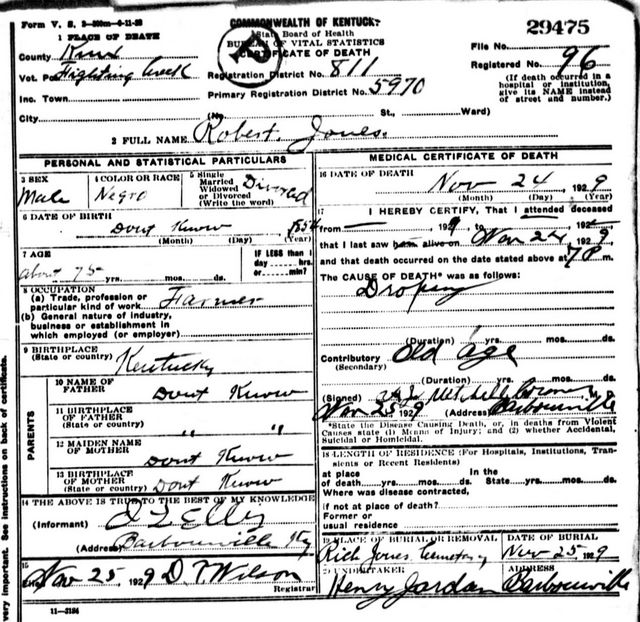 Form V. S.
COMMONWEALTH OF KENTUCKY
29475
1 PLACE OF DEATH
State Board of Health
BUREAU OF VITAL STATISTICS
CERTIFICATE OF DEATH
County Knox
File No.
Vot. Pct. Fighting Creek
Registration District No. 811
Registered No. 96
Inc. Town
Primary Registration District No. 5970
(If death occurred in a hospital or institution, give its NAME instead of street and number.)
City (No. St., Ward)
2 FULL NAME Robert Jones
PERSONAL AND STATISTICAL PARTICULARS
3 SEX
Male
4 COLOR OR RACE
Negro
5 Single
Married
Widowed
or Divorced
(Write the word)
Divorced
6 DATE OF BIRTH
Dont Know
(Month) (Day) (Year)
7 AGE
About 75 yrs. mos. ds.
IF LESS than 1
day hrs.
or min.
8 OCCUPATION
(a) Trade, profession or
particular kind of work Farmer
(b) General nature of industry,
business or establishment in
which employed (or employer)
9 BIRTHPLACE
(State or country) Kentucky
PARENTS
10 NAME OF
FATHER Dont Know
11 BIRTHPLACE
OF FATHER
(State or country) " "
12 MAIDEN NAME
OF MOTHER Dont Know
13 BIRTHPLACE
OF MOTHER
(State or country) Dont Know
14 THE ABOVE IS TRUE TO THE BEST OF MY KNOWLEDGE
(Informant)
(Address) Barbourville Ky
15
Filed Nov 25, 1929 D. T. Wilson
Registrar
11-3184
MEDICAL CERTIFICATE OF DEATH
16 DATE OF DEATH
Nov 24 1929
(Month) (Day) (Year)
17 I HEREBY CERTIFY, That I attended deceased
from 192 to 192
that I last saw him alive on Nov 24, 1929,
and that death occurred on the date stated above at 7 P m.
The CAUSE OF DEATH* was as follows:
Dropsy
(Duration) yrs. mos. ds.
Contributory Old age
(Secondary)
(Duration) yrs. mos. ds.
(Signed) Mitchell Coroner
Nov 25 1929 (Address) Barbourville
*State the Disease Causing Death, or, in deaths from Violent
Causes state (1) Means of Injury; and (2) whether Accidental,
Suicidal or Homicidal.
18 LENGTH OF RESIDENCE (For Hospitals, Institutions, Tran-
sients or Recent Residents)
at place
of death yrs. mos. ds.
In the
State yrs. mos. ds.
Where was disease contracted,
if not at place of death?
Former or
usual residence
19 PLACE OF BURIAL OR REMOVAL
Rich Jones Cemetary
DATE OF BURIAL
Nov 25 1929
20 UNDERTAKER
Henry Jordan
ADDRESS
Barbourville
very important. See instructions on back of certificate.